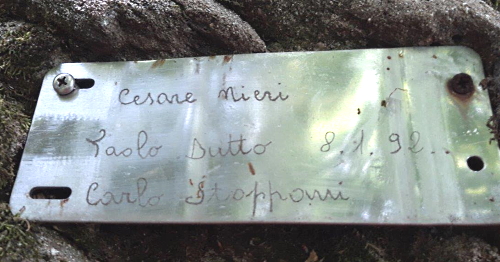 Cesare Nieri
Paolo Dutto 8.1.92..
Carlo Stopponi